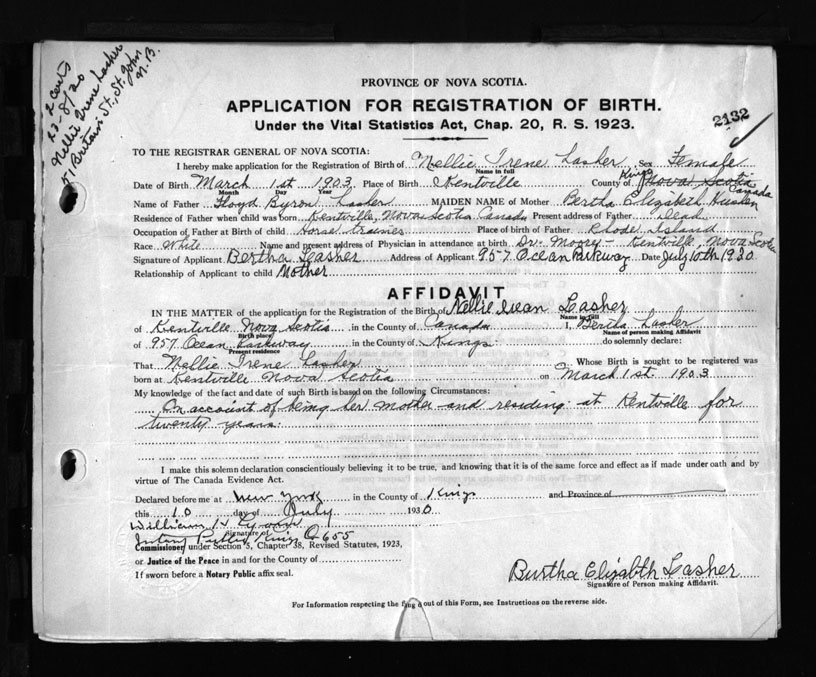 2 certs
23/8/20
Nellie Irene Lasher
51 Britain St., St. John
N.B.
PROVINCE OF NOVA SCOTIA.
APPLICATION FOR REGISTRATION OF BIRTH.
2132
Under the Vital Statistics Act, Chap. 20, R. S. 1923.
TO THE REGISTRAR GENERAL OF NOVA SCOTIA:
I hereby make application for the Registration of Birth of Nellie Irene Lasher Sex Female
Name in full
Date of Birth March 1st 1903 Place of Birth Kentville County of Kings Nova Scotia Canada
Month Day Year
Name of Father Floyd Byron Lasher MAIDEN NAME of Mother Bertha Elizabeth
Residence of Father when child was born Kentville, Nova Scotia Canada Present address of Father Dead
Occupation of Father at Birth of child Horse trainer Place of birth of Father Rhode Island
Race White Name and present address of Physician in attendance at birth Dr. Moory - Kentville, Nova Scotia
Signature of Applicant Bertha Lasher Address of Applicant 957 Ocean Parkway Date July 10th 1930
Relationship of Applicant to child Mother
AFFIDAVIT
IN THE MATTER of the application for the Registration of the Birth of Nellie Lasher
Name in full
of Kentville Nova Scotia in the County of Canada I, Bertha Lasher
Birth place Name of person making Affidavit
of 957 Ocean Parkway in the County of Kings do solemnly declare:
Present residence
That Nellie Irene Lasher Whose Birth is sought to be registered was
born at Kentville Nova Scotia on March 1st. 1903
My knowledge of the fact and date of such Birth is based on the following Circumstances:
On account of being her mother and residing at Kentville for
twenty years.
I make this solemn declaration conscientiously believing it to be true, and knowing that it is of the same force and effect as if made under oath and by
virtue of The Canada Evidence Act.
Declared before me at New York in the County of Kings and Province of
this 10 day of July 1930
William H
Signature of
Notary Public Kings Co 655
Commissioner under Section 5, Chapter 38, Revised Statutes, 1923,
or Justice of the Peace in and for the County of
If sworn before a Notary Public affix seal.
Burtha Elizabth Lasher
Signature of Person making Affidavit.
For Information respecting the out of this Form, see Instructions on the reverse side.